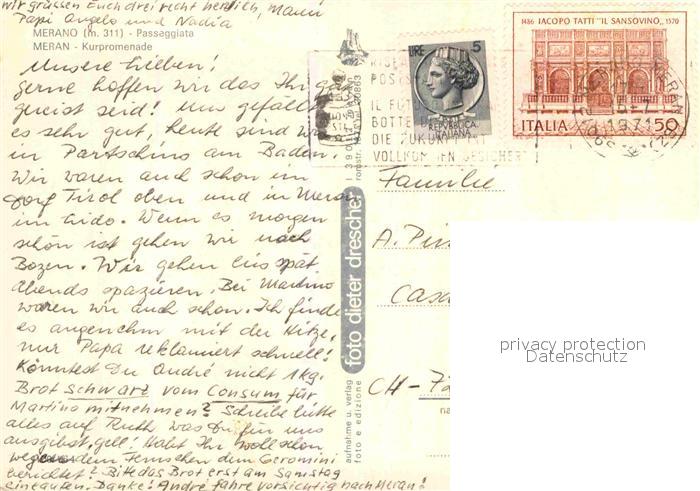 wir grüssen Euch drei recht herzlich, Mami
Papi Angelo und Nadia
MERANO (m. 311) - Passeggiata
MERAN - Kurpromenade
Unsere Lieben!
gerne hoffen wir das Ihr gut
gereist seid! Uns gefällt
es sehr gut, heute sind wir
in Partschins am Baden.
Wir waren auch schon im
Dorf Tirol oben und in Meran
im Lido. Wenn es morgen
schön ist gehen wir nach
Bozen. Wir gehen bis spät
Abends spazieren. Bei Martino
waren wir auch schon. Ich finde
es angenehm mit der Hitze,
nur Papa reklamiert schnell!
Könntest Du André nicht 1 kg.
Brot schwarz vom Consum für
Martino mitnehmen? Schreibe bitte
alles auf Ruth was Du für uns
ausgibst, gell! Habt Ihr wohl schon
wegen dem Fernsehen dem Geromini
berichtet? Bitte das Brot erst am Samstag
einkaufen. Danke! André fahre vorsichtig nach Meran!
foto dieter drescher
aufnahme u. verlag
foto e edizione
LIRE 5
REPVBBLICA ITALIANA
1486 IACOPO TATTI "IL SANSOVINO" 1570
ITALIA 50
IL FUT
BOTTE
DIE ZUKUNFT
VOLLKOMMEN GESICHERT
MERAN
1971
Familie
A. Pin
Casa
CH-
privacy protection
Datenschutz